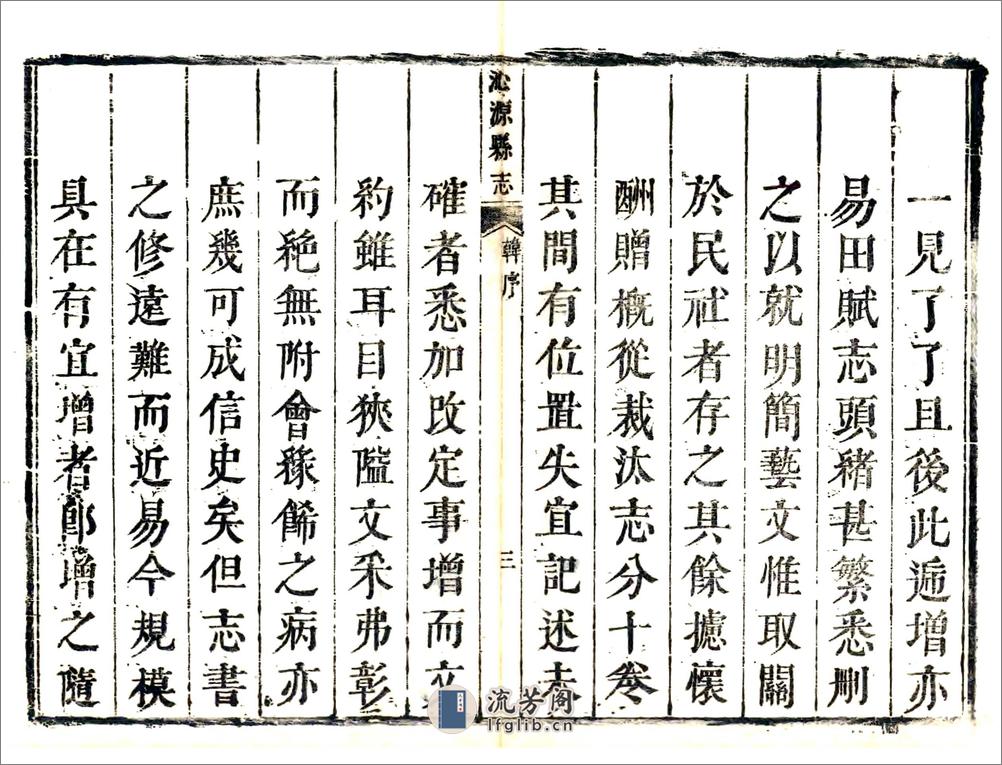 一見了了且後此遞增亦
易田賦志頭緒甚繁悉刪
之以就明簡藝文惟取關
於民社者存之其餘攄懷
酬贈概從裁汰志分十卷
其間有位置失宜記述未
沁源縣志 韓序 三
確者悉加改定事增而文
約雖耳目狹隘文采弗彰
而絶無附會緣餙之病亦
庶幾可成信史矣但志書
之修遠難而近易今規模
具在有宜增者即增之隨
流芳阁
lfglib.cn